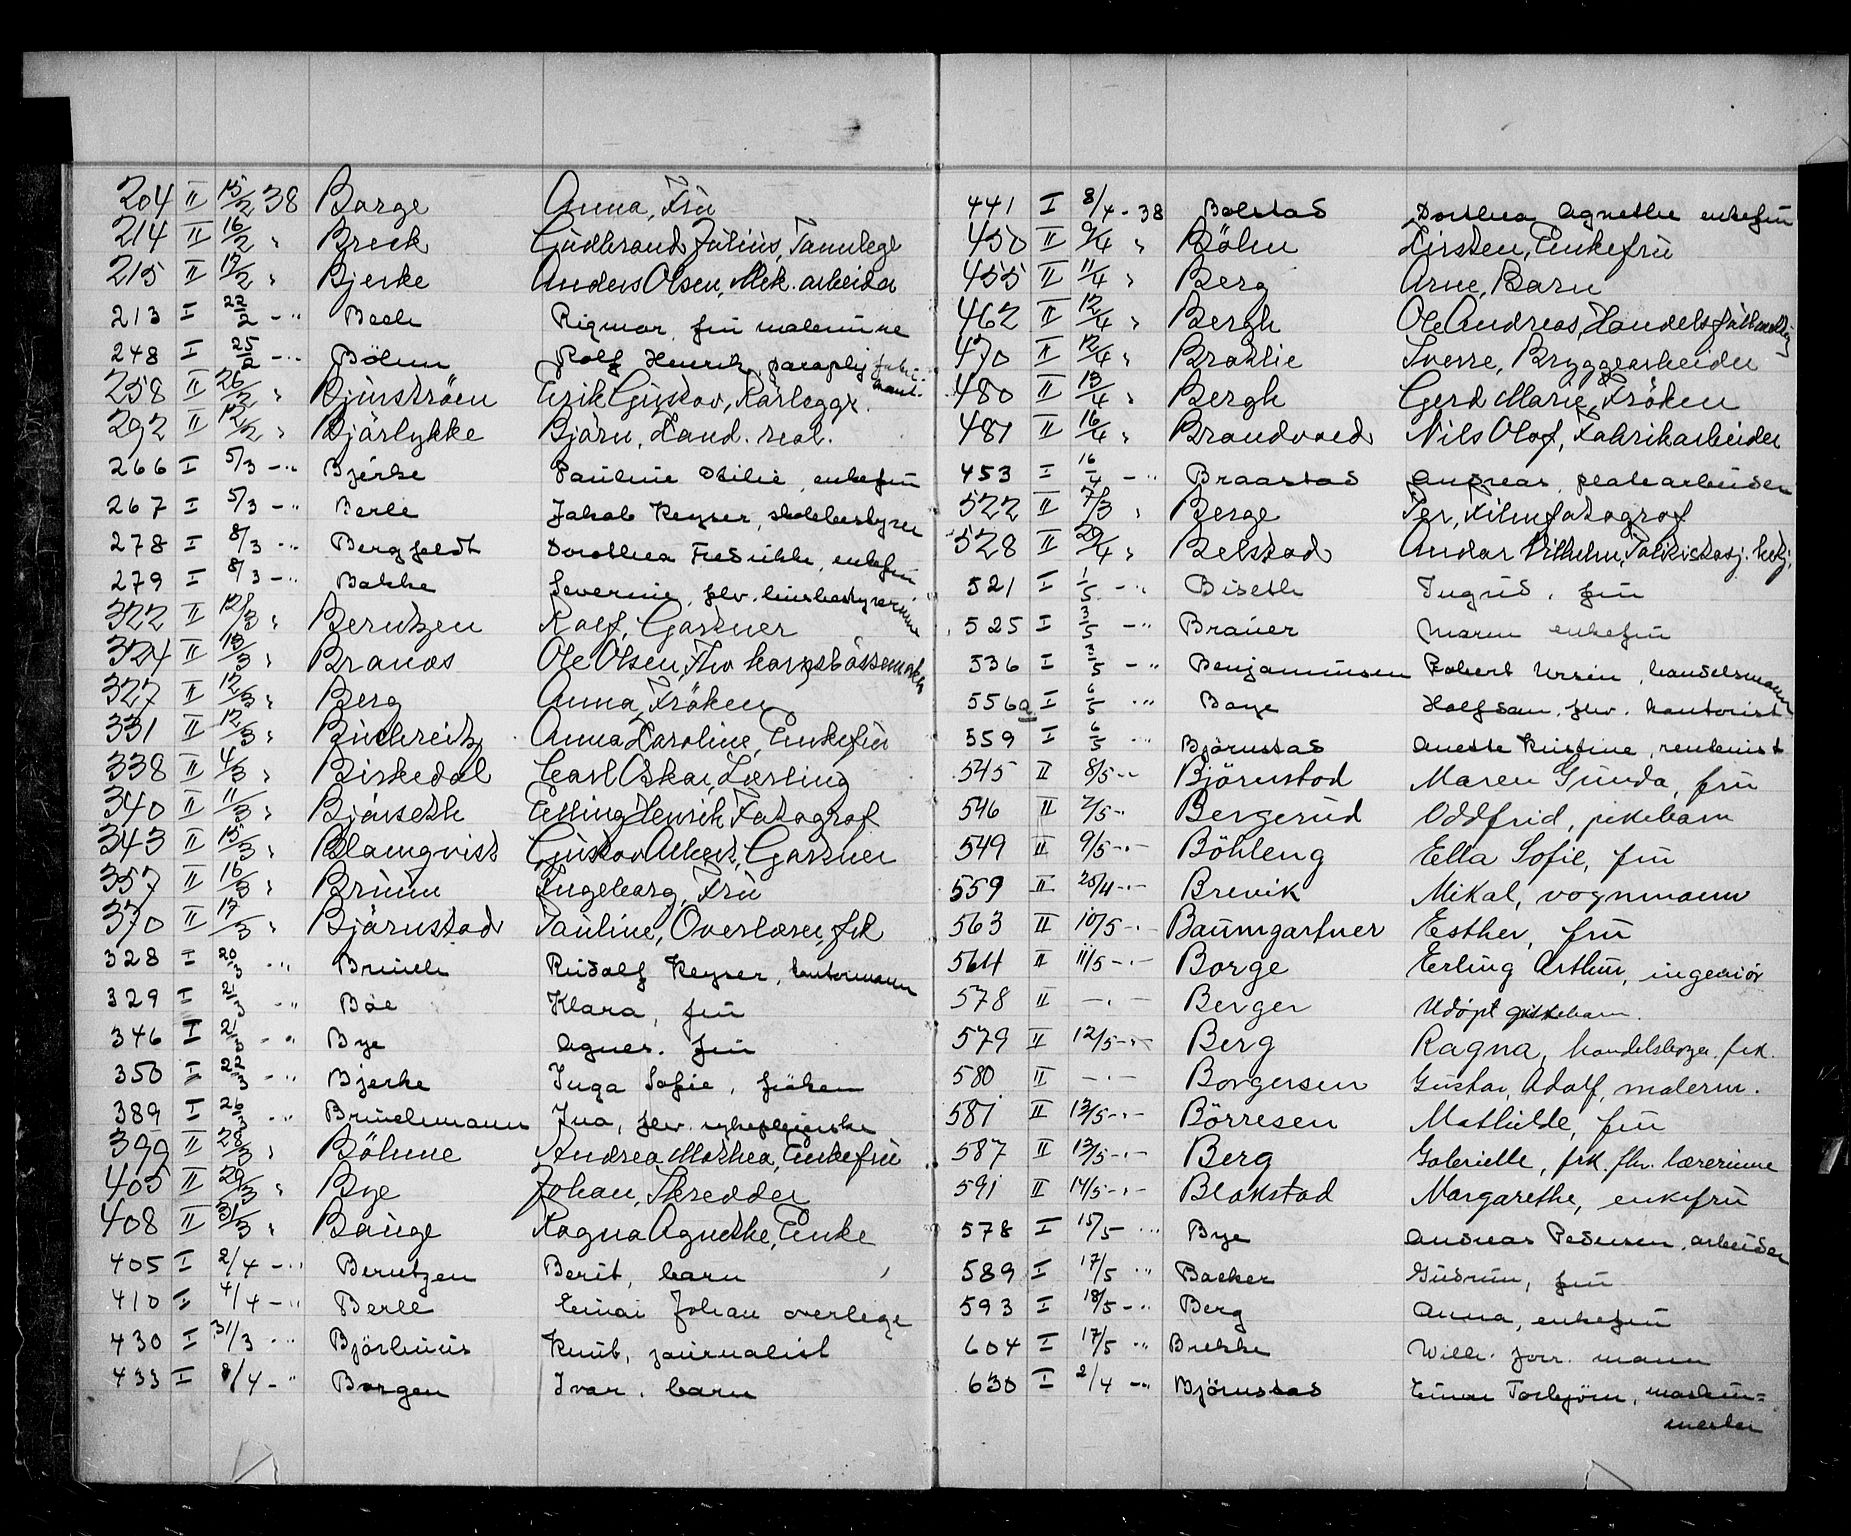 204 II 15/2 38 Borge Anna, Fru
214 II 16/2 " Breck Gudbrand Julius, Tannlege
215 II 17/2 " Bjerke Anders Olsen, Mek. arbeider
213 I 22/2 - " Bech Rigmor, fru malerinne
248 I 25/2 - " Böhm Rolf Henrik, paraplyfabri-
kant.
258 II 26/2 " Bjurströem Erik Gustav, Rørlegger.
292 II 12/2 " Bjørlykke Bjørn, Kand. real.
266 I 5/3 - " Bjerke Pauline Otilie, enkefru
267 I 5/3 - " Berle Jakob Keyser, skolebestyrer
278 I 8/3 - " Bergfeldt Dorothea Fredrikke, enkefru
279 I 8/3 - " Bakke Severine, flv. husbestyrerinne
322 II 12/3 " Berntzen Rolf, Gartner
324 II 13/3 " Branæs Ole Olsen, Flv kongsbøssemaker
327 II 12/3 " Berg Anna, Fröken
331 II 12/3 " Buchreitz Anna Karoline, Enkefru
338 II 4/3 " Birkedal Carl Oskar, Lærling
340 II 11/3 " Bjørseth Elling Henrik, Fotograf
343 II 15/3 " Blomqvist Gustav Albert, Gartner
357 II 16/3 " Bruun Ingeborg, Fru
370 II 17/3 " Bjørnstad Pauline, Overlærer, frk
328 I 20/3 - " Bruuch Rudolf Keyser, kontormann
329 I 21/3 - " Böe Klara, fru
346 I 21/3 - " Bye Agnes, fru
350 I 22/3 - " Bjerke Inga Sofie, fröken
389 I 26/3 - " Bruchmann Ina, flv. sykepleierske
399 II 28/3 " Böhme Andrea Mathea, Enkefru
405 II 29/3 " Bye Johan, Skredder
408 II 31/3 " Bauge Ragna Agnethe, Enke
405 I 2/4 - " Berntzen Berit, barn
410 I 4/4 - " Berle Einar Johan overlege
430 I 31/3 - " Björhuus Knut, journalist
433 I 8/4 - " Borgen Ivar, barn
441 I 8/4 - 38 Bolstad Dorthea Agnethe enkefru
450 II 9/4 " Böhn Kirsten, Enkefru
455 II 11/4 " Berg Arne, Barn
462 II 12/4 " Bergh Ole Andreas, Handelsfullmektig
470 II 12/4 " Brattlie Sverre, Bryggearbeider
480 II 13/4 " Bergh Gerd Marie, Fröken
481 II 16/4 " Brandvold Nils Olof, Fabrikarbeider
453 I 16/4 - " Braastad Andreas, platearbeider
522 II 7/3 " Berge Per, Filmfotograf
528 II 29/4 " Belstad Andor Vilhelm,
521 I 1/5 - " Biseth Ingrid, fru
525 I 3/5 - " Brauer Maren enkefru
536 I 3/5 - " Benjaminsen Robert Ursin, handelsmann
556a I 6/5 - " Boye Halfdan, flv. kontorist
559 I 6/5 - " Björnstad Anette Kristine, rentenist
545 II 8/5 - " Björnstad Maren Gunda, fru
546 II 7/5 - Bergerud Oddfrid, pikebarn
549 II 9/5 - " - Böhleng Ella Sofie, fru
559 II 25/4 - " - Brevik Mikal, vognmann
563 II 10/5 - " - Baumgartner Esther, fru
564 II 11/5 - " - Borge Erling Arthur, ingeniör
578 II - " - Berger Udöpt guttebarn.
579 II 12/5 - " - Berg Ragna, handelsborger. frk.
580 II - " - Borgersen Gustav, Adolf, malerm.
581 II 13/5 - " - Börresen Mathilde, fru
587 II 13/5 - " - Berg Gabrielle, frk. flv. lærerinne
591 II 14/5 - " - Blakstad Margarethe, enkefru
578 I 15/5 - " Bye Andreas Pedersen, arbeider
589 I 17/5 - " Backer Gudrun, fru
593 I 18/5 - " Berg Anna, enkefru
604 I 17/5 - " Brekke Wilh. forr. mann
630 I 2/4 - " Björnstad Einar Torbjörn, maskin=
mester